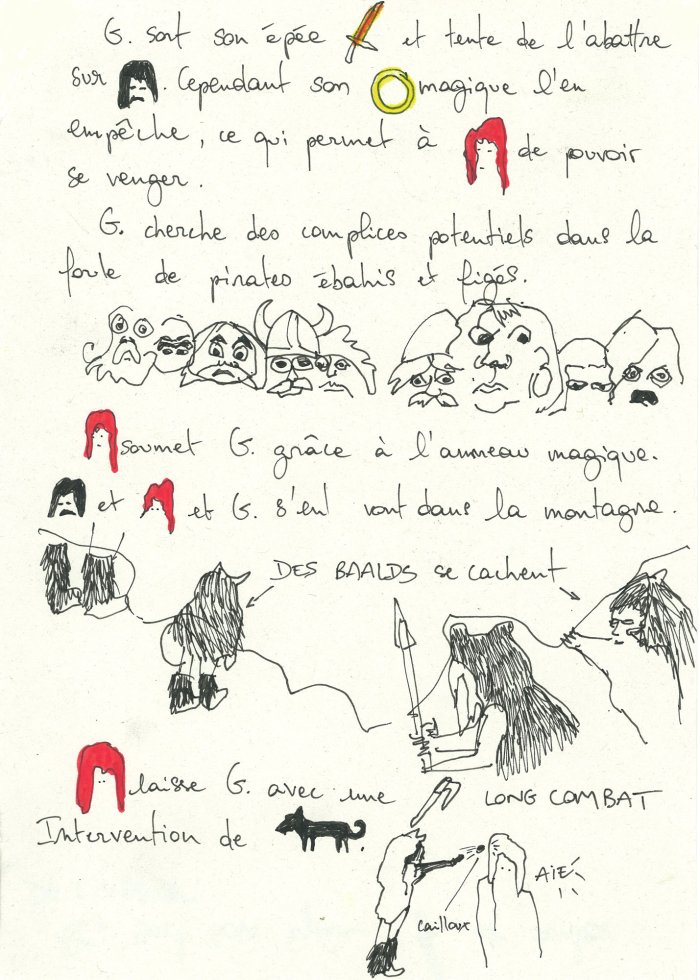 G. sort son épée et tente de l'abattre
sur . Cependant son magique l'en
empêche, ce qui permet à de pouvoir
se venger.
G. cherche des complices potentiels dans la
foule de pirates ébahis et figés.
soumet G. grâce à l'anneau magique.
et et G. s'en vont dans la montagne.
DES BAALDS se cachent
laisse G. avec une LONG COMBAT
Intervention de .
AIE
cailloux